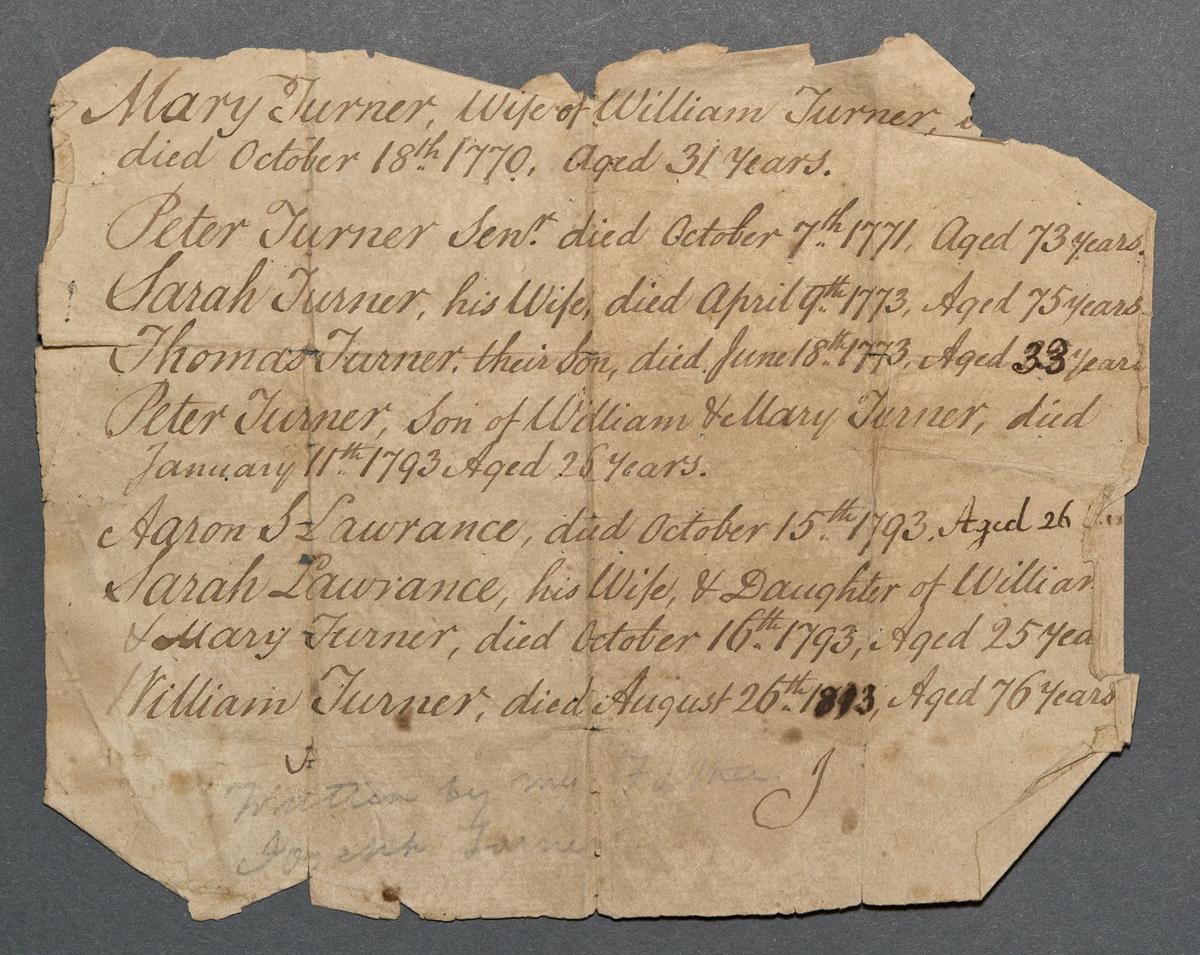 Mary Turner, Wife of William Turner,
died October 18th 1770, Aged 31 Years.
Peter Turner Senr. died October 7th 1771, Aged 73 years.
Sarah Turner, his Wife, died April 9th 1773, Aged 75 years
Thomas Turner. their Son, died June 18th 1773, Aged 33 Years
Peter Turner, Son of William & Mary Turner, died
January 11th 1793 Aged 26 Years.
Aaron S Lawrance, died October 15th 1793. Aged 26
Sarah Lawrance, his Wife, & Daughter of William
& Mary Turner, died October 16th 1793, Aged 25 Yea
William Turner, died August 26th 1813, Aged 76 Years
J
Written by my Father
Joseph Turne